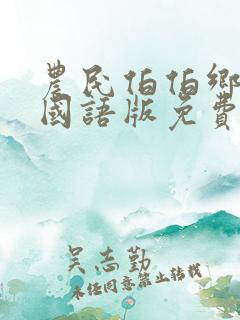 農民伯伯鄉
國語版免費
吴志勤
未经同意禁止转载